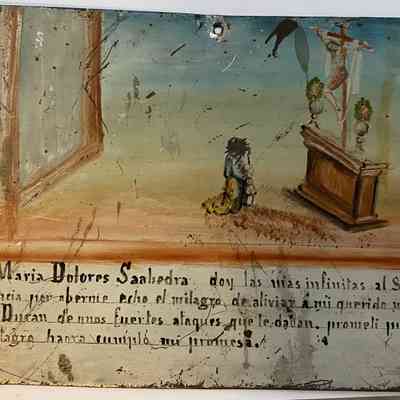 Maria Dolores Saabedra doy las mas infinitas al S
ncia por aberme echo el milagro de aliviar a mi querido
Duran de unos fuertes ataques que le daban. prometi pu
lagro haora cumplo mi promesa.